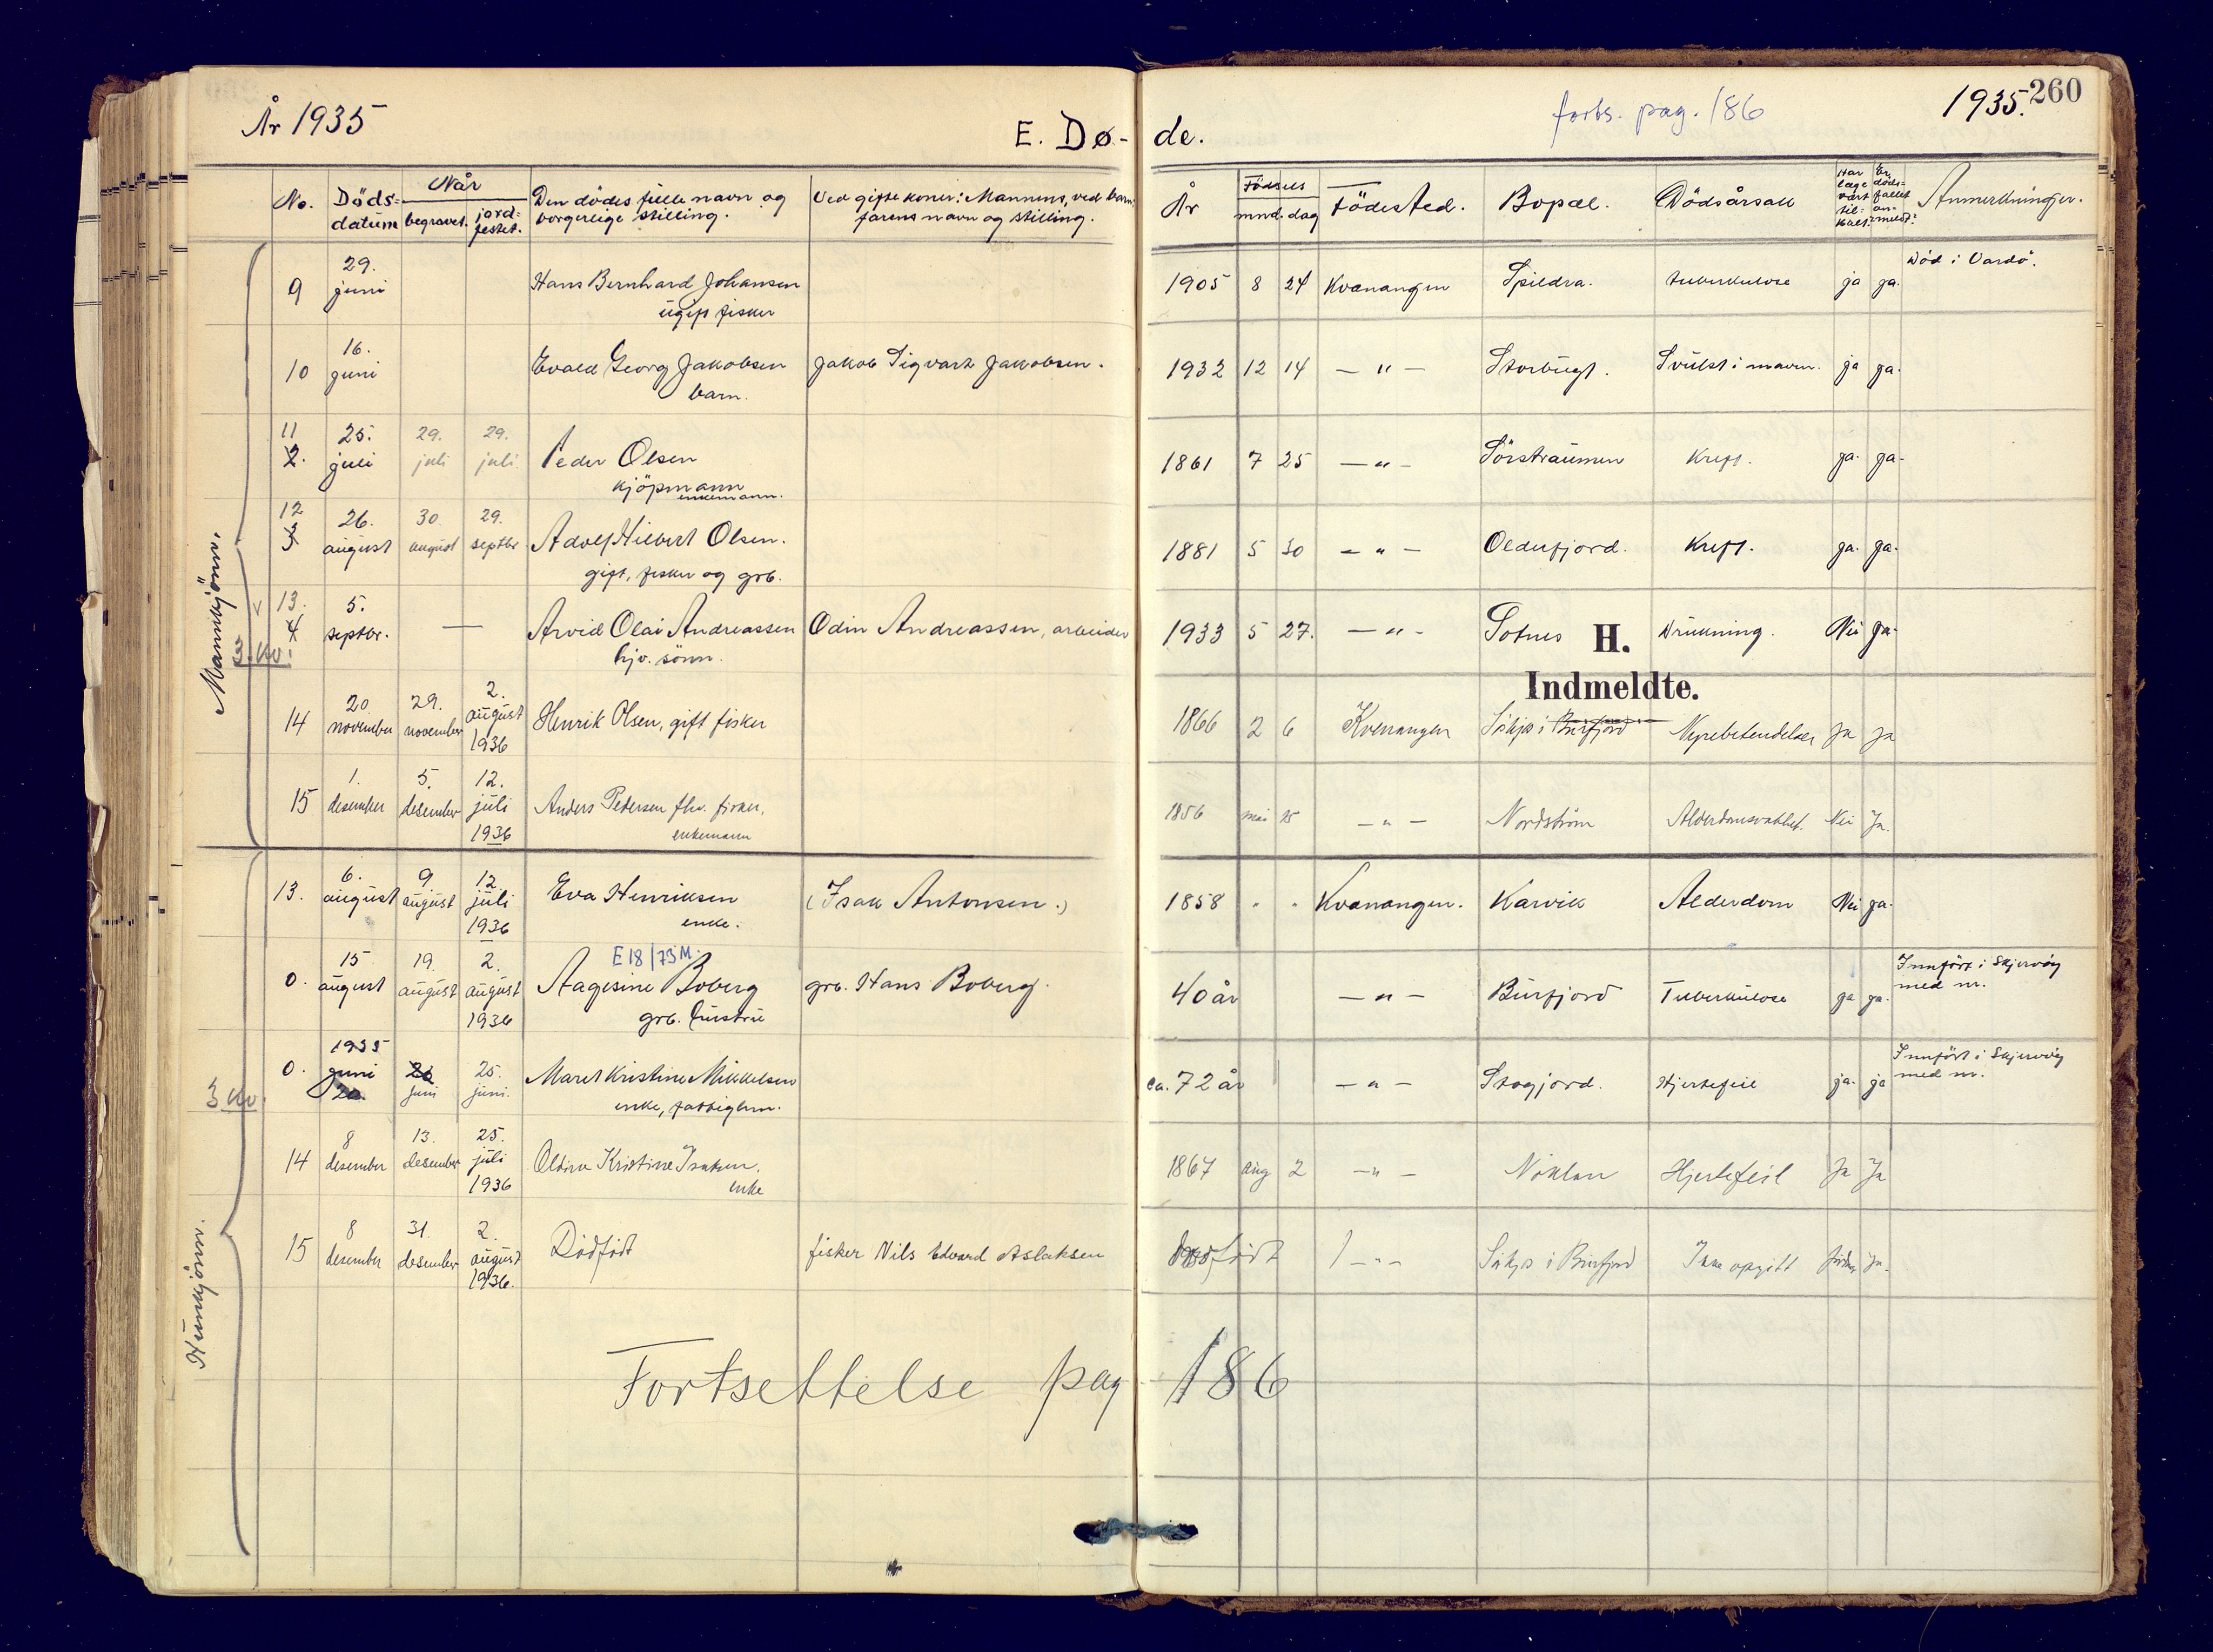 År 1935
E. Dø-
de.
forts. pag. 186
1935.
260
No.
Döds-
datum
Når
begravet.
jord-
festet.
Den dödes fulle navn og
borgerlige stilling.
Ved gifte koner: Mannens, ved barn:
farens navn og stilling.
År
Födsels
mnd. dag
Födested.
Bopæl.
Dödsårsak
Har
læge
vært
til-
kalt?
Er
döds-
fallet
an-
meldt?
Anmerkninger.
Mannkjönn.
9 29. juni Hans Bernhard Johansen 1905 8 24 Kvænangen Spildra. tuberkulose ja ja. Död i Vardö.
ugift fisker
10 16. juni Evald Georg Jakobsen Jakob Sigvart Jakobsen. 1932 12 14 — " — Storbugt. Svulst i maven. ja ja.
barn.
11 2. 25. juli 29. juli 29. juli Peder Olsen 1861 7 25 — " — Sörstraumen Kreft. ja. ja.
kjöpmann
enkemann.
12 3 26. august 30. august 29. septbr Adolf Hilbert Olsen. 1881 5 30 — " — Olderfjord. Kreft. ja. ja.
gift, fisker og grb.
v 13. 4 5. septbr. — Arvid Olai Andreassen Odin Andreassen, arbeider 1933 5 27. — " — Sotnes Drukning. Nei ja.
hjv. sönn.
3. kv.
H.
Indmeldte.
14 20 november 29. november 2. august 1936 Henrik Olsen, gift fisker 1866 2 6 Kvenangen i Burfjord Nyrebetendelse Ja ja
15 1. desember 5. desember 12. juli 1936 Anders Pedersen fhv. fisker, 1856 mai 25 — " — Nordström Alderdomsvakhet. Nei Ja.
enkemann
13. 6. august 9. august 12. juli 1936 Eva Henriksen (Isak Antonsen.) 1858 " " Kvænangen. Karvik Alderdom Nei ja.
enke.
E 18/73 M.
0. 15 august 19. august 2. august 1936 Aagesine Boberg grb. Hans Boberg. 40 år — " — Burfjord Tuberkulose ja ja. Innfört i Skjervöy
grb. hustru
med nr.
0. 1935 juni 20. 26 juni 25. juni. Maret Kristine Mikkelsen ca. 72 år — " — Stogjord. Hjertefeil ja. ja Innfört i Skjervöy
enke, fattiglem.
med nr.
3 kv.
14 8 desember 13. desember 25. juli 1936 Oldine Kristine Isaksen, 1867 aug 2 — " — Hjertefeil Ja Ja
enke
15 8 desember 31. desember 2. august 1936. Dödfödt fisker Nils Edvard Aslaksen — " — i Burfjord Ikke opgitt ja.
Kvinnkjönn.
Fortsettelse pag 186